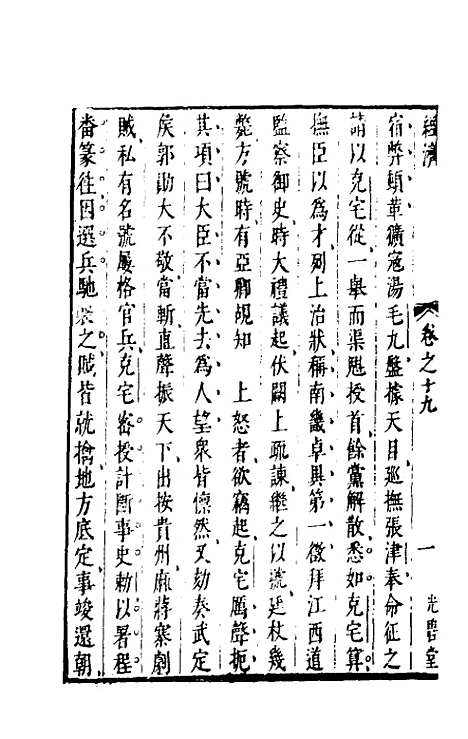 經濟 卷之十九 一 光碧堂
宿弊頓革礦寇湯毛九盤據天目巡撫張津奉命征之
請以克宅從一舉而渠魁授首餘黨解散悉如克宅算
撫臣以爲才列上治狀稱南畿卓異第一徵拜江西道
監察御史時大禮議起伏闕上疏諫繼之以號廷杖幾
斃方號時有亞卿覘知 上怒者欲竊起克宅厲聲扼
其項曰大臣不當先去爲人望衆皆悚然又劾奏武定
侯郭勛大不敬當斬直聲振天下出按貴州麻蔣寨劇
賊私有名號屢格官兵克宅密授計斷事史勅以署程
番篆往因選兵馳 之賊皆就擒地方底定事竣還朝